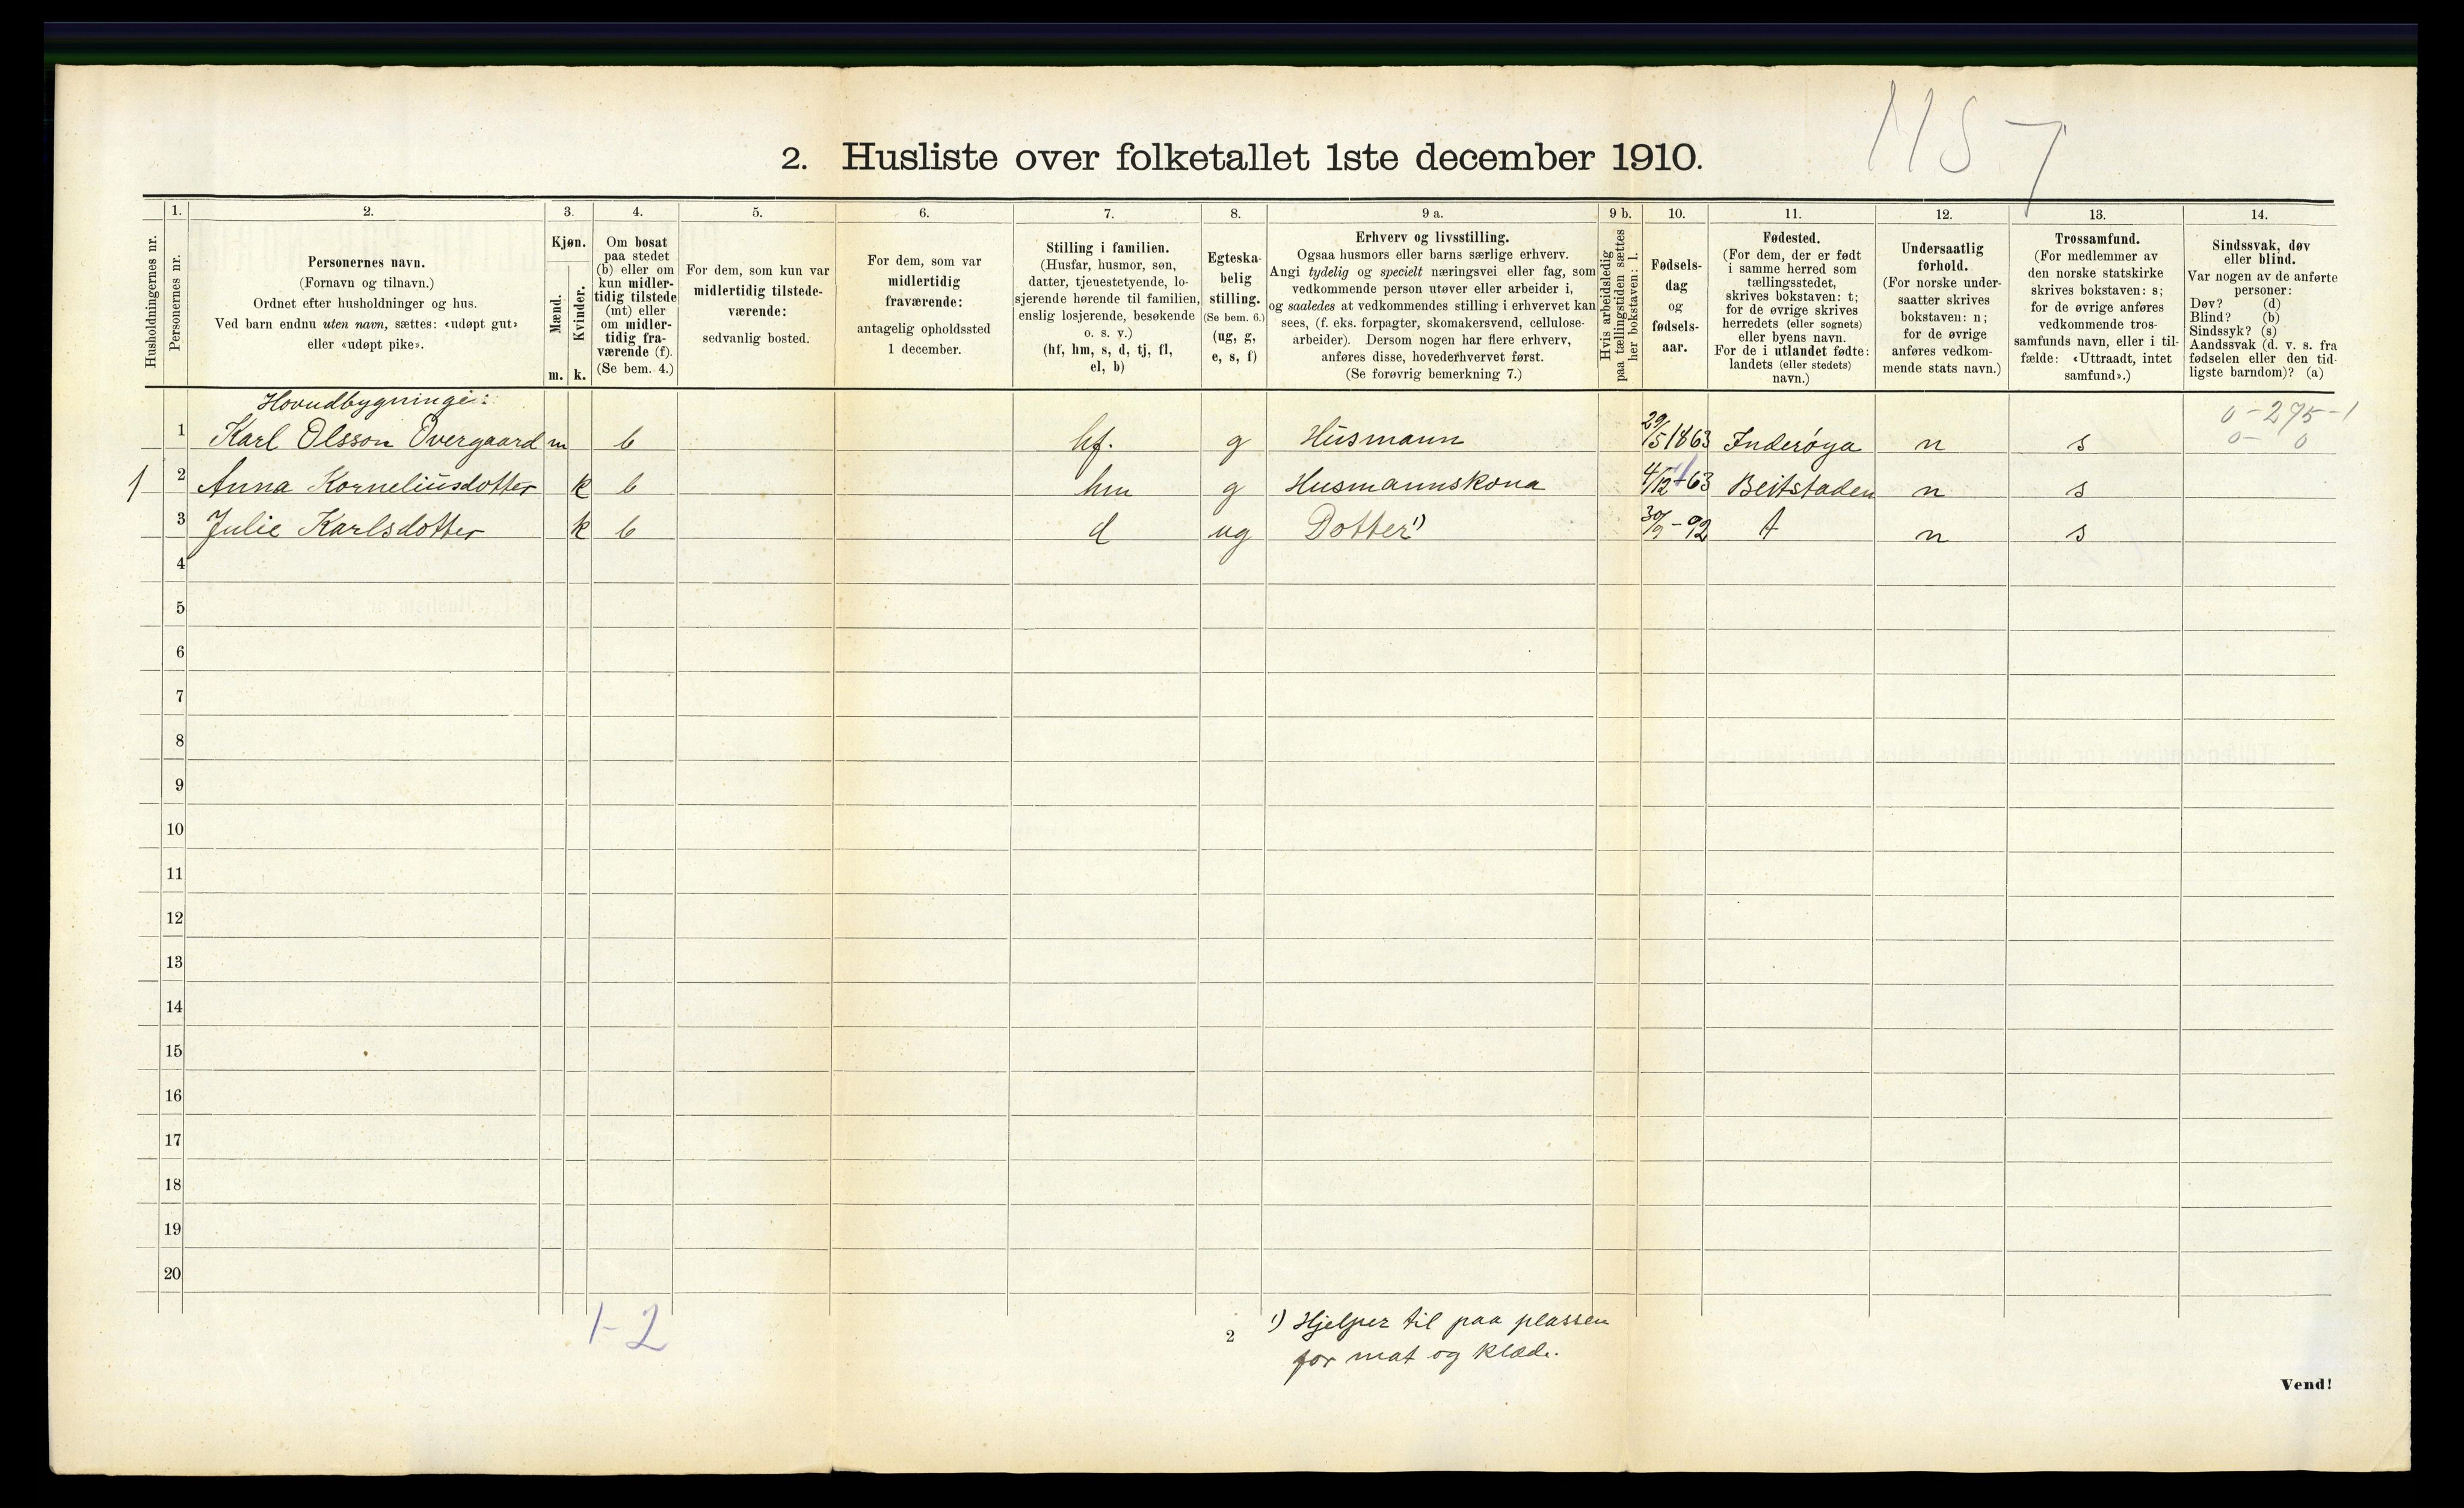 1157
2. Husliste over folketallet 1ste december 1910.
1. 2. 3. 4. 5. 6. 7. 8. 9 a. 9 b. 10. 11. 12. 13. 14.
Husholdningernes nr.
Personernes nr.
Personernes navn.
(Fornavn og tilnavn.)
Ordnet efter husholdninger og hus.
Ved barn endnu uten navn, sættes: «udøpt gut»
eller «udøpt pike».
Kjøn.
Mænd.
Kvinder.
m. k.
Om bosat
paa stedet
(b) eller om
kun midler-
tidig tilstede
(mt) eller
om midler-
tidig fra-
værende (f).
(Se bem. 4.)
For dem, som kun var
midlertidig tilstede-
værende:
sedvanlig bosted.
For dem, som var
midlertidig
fraværende:
antagelig opholdssted
1 december.
Stilling i familien.
(Husfar, husmor, søn,
datter, tjenestetyende, lo-
sjerende hørende til familien,
enslig losjerende, besøkende
o. s. v.)
(hf, hm, s, d, tj, fl,
el, b)
Egteska-
belig
stilling.
(Se bem. 6.)
(ug, g,
e, s, f)
Erhverv og livsstilling.
Ogsaa husmors eller barns særlige erhverv.
Angi tydelig og specielt næringsvei eller fag, som
vedkommende person utøver eller arbeider i,
og saaledes at vedkommendes stilling i erhvervet kan
sees, (f. eks. forpagter, skomakersvend, cellulose-
arbeider). Dersom nogen har flere erhverv,
anføres disse, hovederhvervet først.
(Se forøvrig bemerkning 7.)
Hvis arbeidsledig
paa tællingstiden sættes
her bokstaven: l.
Fødsels-
dag
og
fødsels-
aar.
Fødested.
(For dem, der er født
i samme herred som
tællingsstedet,
skrives bokstaven: t;
for de øvrige skrives
herredets (eller sognets)
eller byens navn.
For de i utlandet fødte:
landets (eller stedets)
navn.)
Undersaatlig
forhold.
(For norske under-
saatter skrives
bokstaven: n;
for de øvrige
anføres vedkom-
mende stats navn.)
Trossamfund.
(For medlemmer av
den norske statskirke
skrives bokstaven: s;
for de øvrige anføres
vedkommende tros-
samfunds navn, eller i til-
fælde: «Uttraadt, intet
samfund».)
Sindssvak, døv
eller blind.
Var nogen av de anførte
personer:
Døv? (d)
Blind? (b)
Sindssyk? (s)
Aandssvak (d. v. s. fra
fødselen eller den tid-
ligste barndom)? (a)
Hovudbygningi: 0-275-1
1 Karl Olsson Overgaard m b hf. g Husmann 29/5 1863 Inderøya n s 0- 0
1 2 Anna Korneliusdotter k b hm g Husmannskona 4/12 -63 Beitstaden n s
3 Julie Karlsdotter k b d ug Dotter 1) 30/9 -92 t n s
4
5
6
7
8
9
10
11
12
13
14
15
16
17
18
19
20
1-2
2
1) Hjelper til paa plassen
for mat og klæde.
Vend!